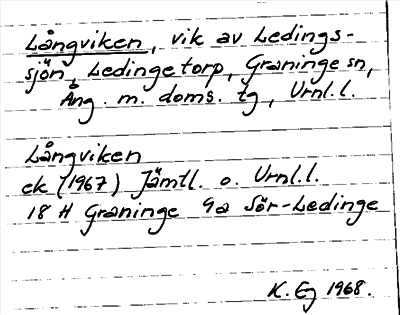 Långviken, vik av Ledings-
sjön, Ledingetorp, Graninge sn,
Ång. m. doms. tg, Vrnl.l.
Långviken
ek (1967) Jämtl. o. Vrnl.l.
18 H Graninge 9a Sör-Ledinge
K. Eg 1968.